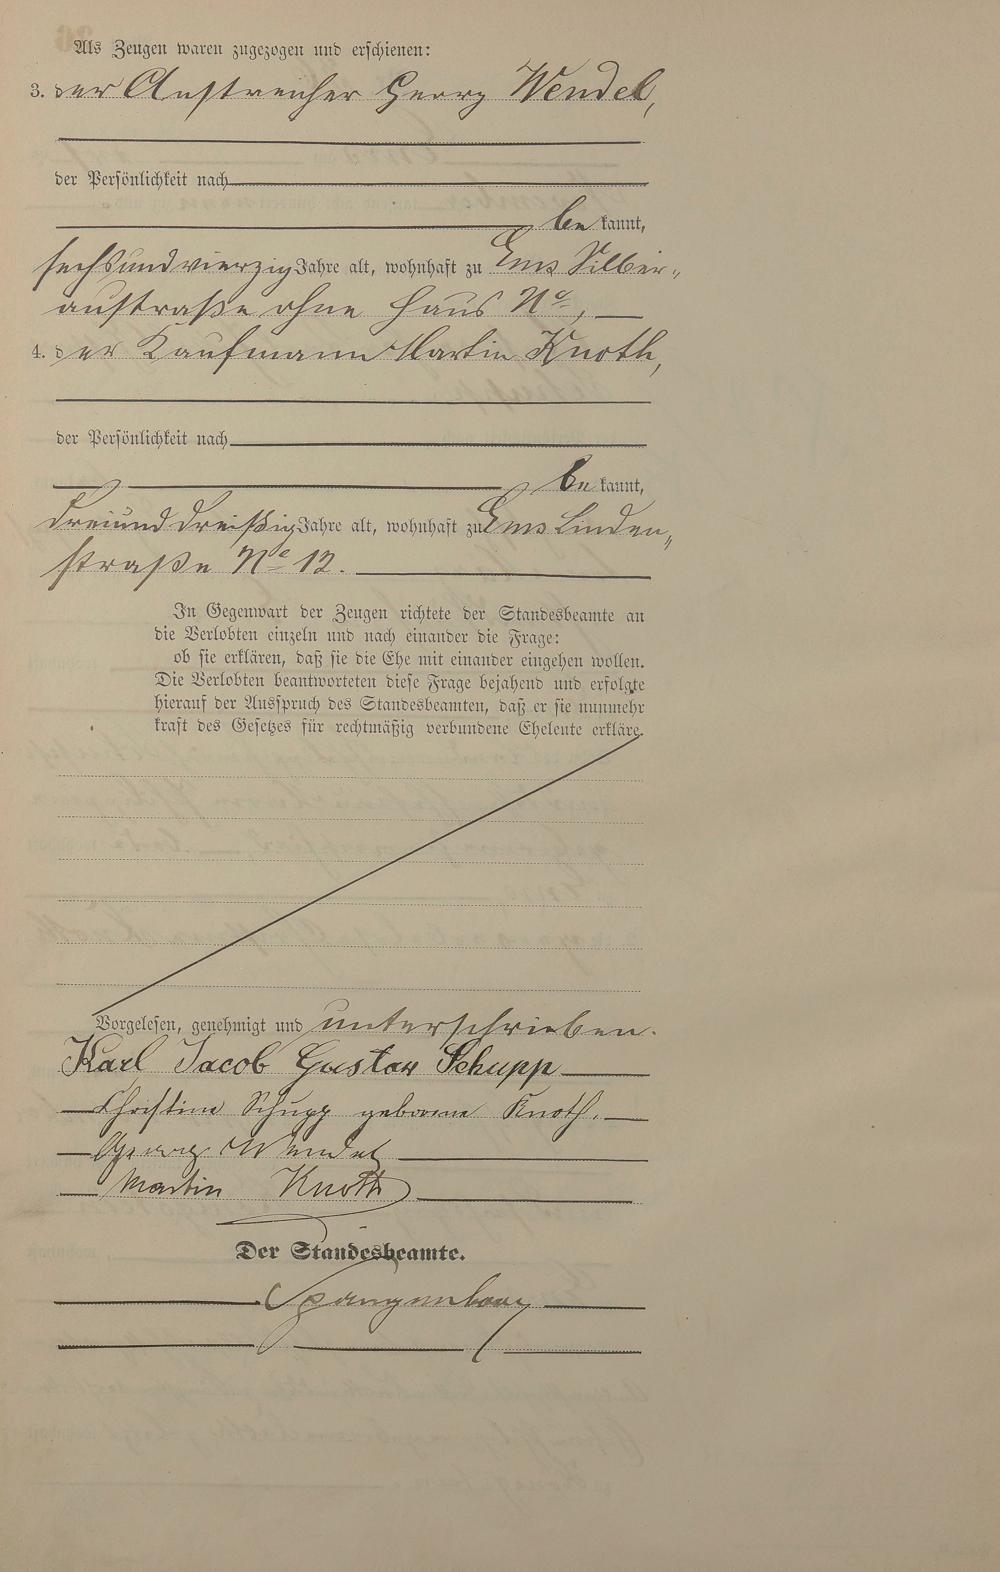 Als Zeugen waren zugezogen und erschienen:
3. der Anstreicher Georg Wendel,
der Persönlichkeit nach
be kannt,
sechsundvierzig Jahre alt, wohnhaft zu Ems Silber„
austraße ohne Haus No,
4. der Kaufmann Martin Knoth,
der Persönlichkeit nach
be kannt,
dreiunddreißig Jahre alt, wohnhaft zu Ems Linden„
straße No 12.
In Gegenwart der Zeugen richtete der Standesbeamte an
die Verlobten einzeln und nach einander die Frage:
ob sie erklären, daß sie die Ehe mit einander eingehen wollen.
Die Verlobten beantworteten diese Frage bejahend und erfolgte
hierauf der Ausspruch des Standesbeamten, daß er sie nunmehr
kraft des Gesetzes für rechtmäßig verbundene Eheleute erkläre.
Vorgelesen, genehmigt und unterschrieben.
Karl Jacob Gustav Schupp
Christine Schupp geborene Knoth.
Georg Wendel
Martin Knoth
Der Standesbeamte.
Spangenberg